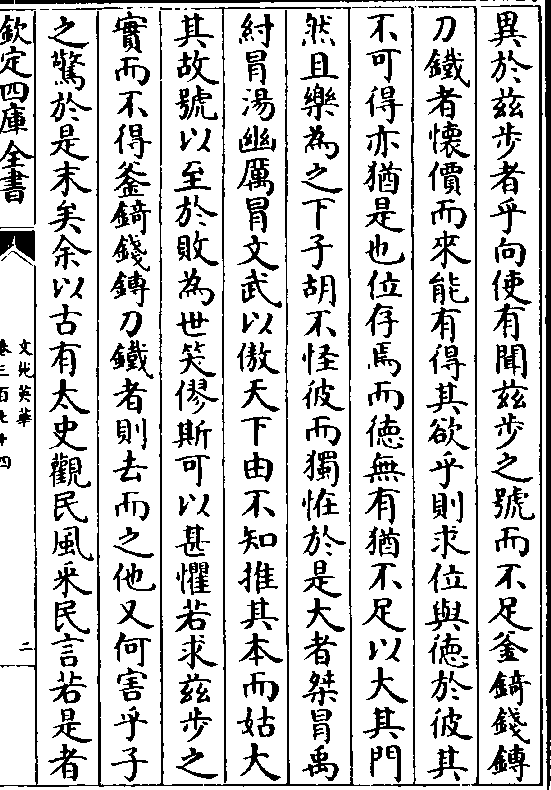 異於兹步者乎向使有聞兹步之號而不足釡錡錢鏄
刀鐵者懐價而來能有得其欲乎則求位與徳於彼其
不可得亦猶是也位存焉而徳無有猶不足以大其門
然且樂為之下子胡不怪彼而獨怪於是大者桀冒禹
紂冒湯幽厲冒文武以傲天下由不知推其本而姑大
其故號以至於敗為世笑僇斯可以甚懼若求兹步之
實而不得釡錡錢鏄刀鐵者則去而之他又何害乎子
之驚於是末矣余以古有太史觀民風采民言若是者
欽定四庫全書
文苑英華
卷三百七十四
二